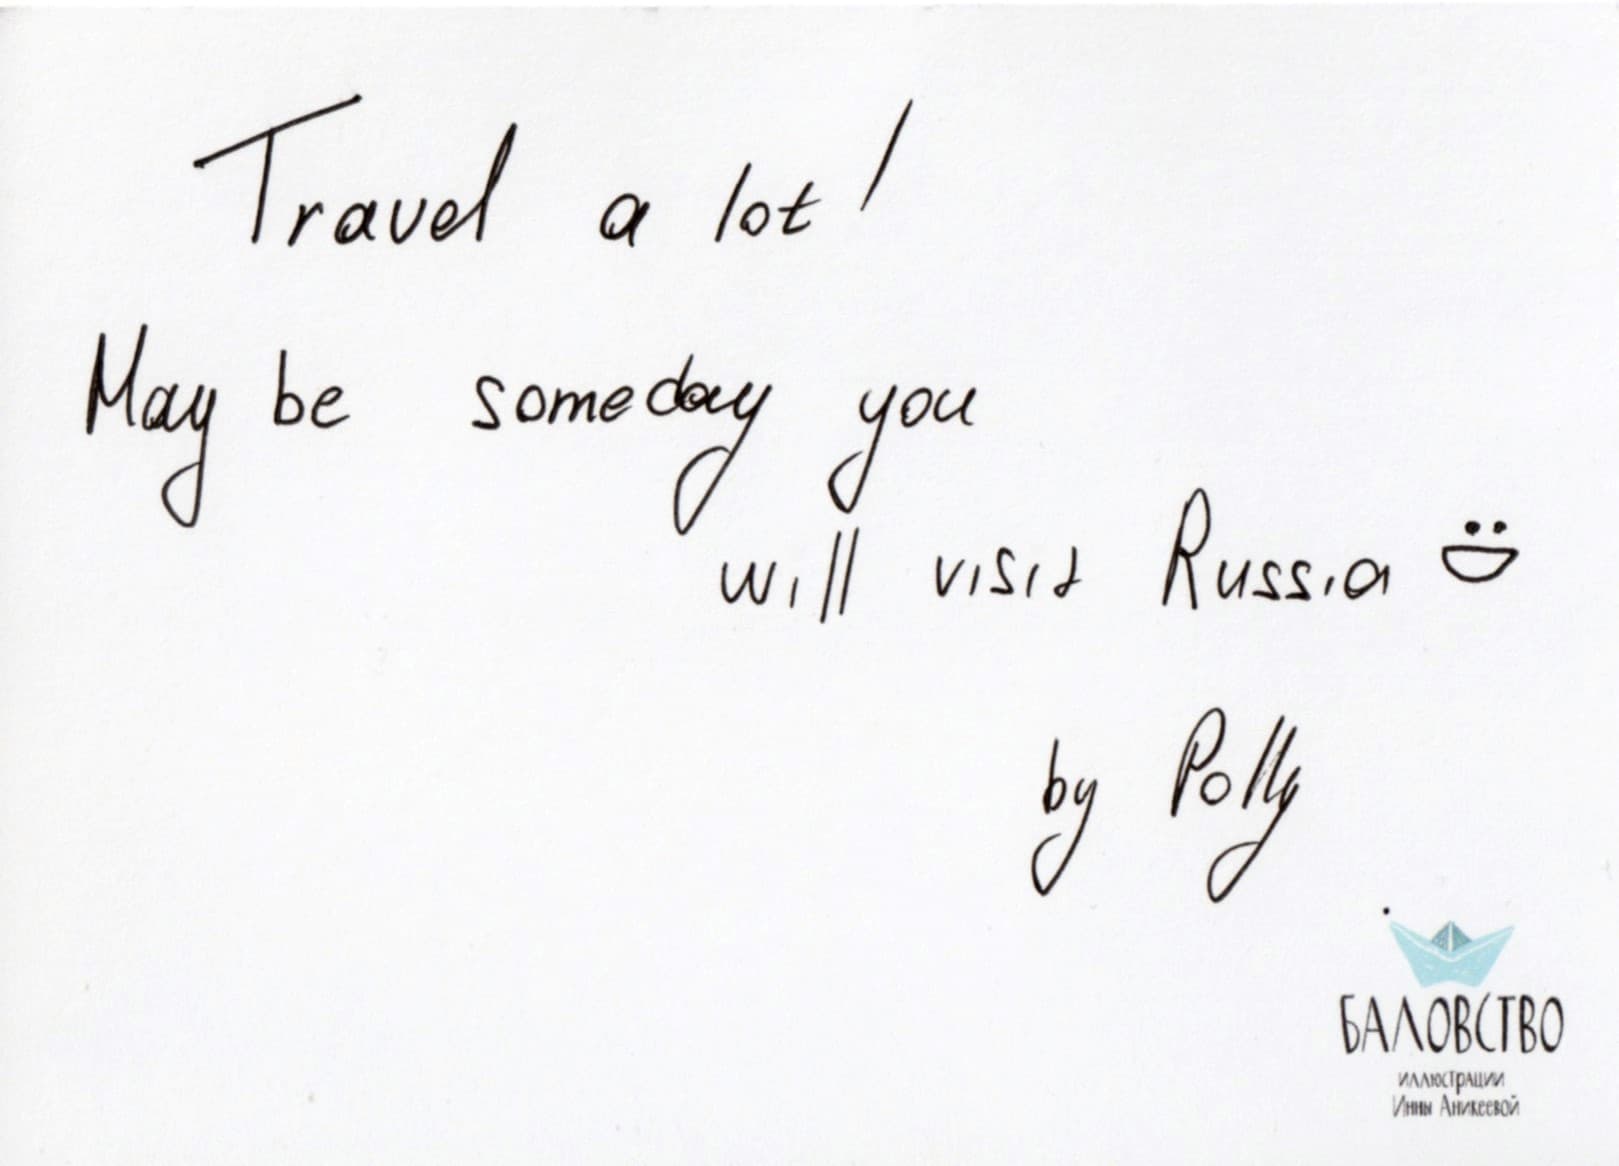 Travel a lot!
May be someday you
will visit Russia
by Polly
БАЛОВСТВО
иллюстрации
Инны Аникеевой